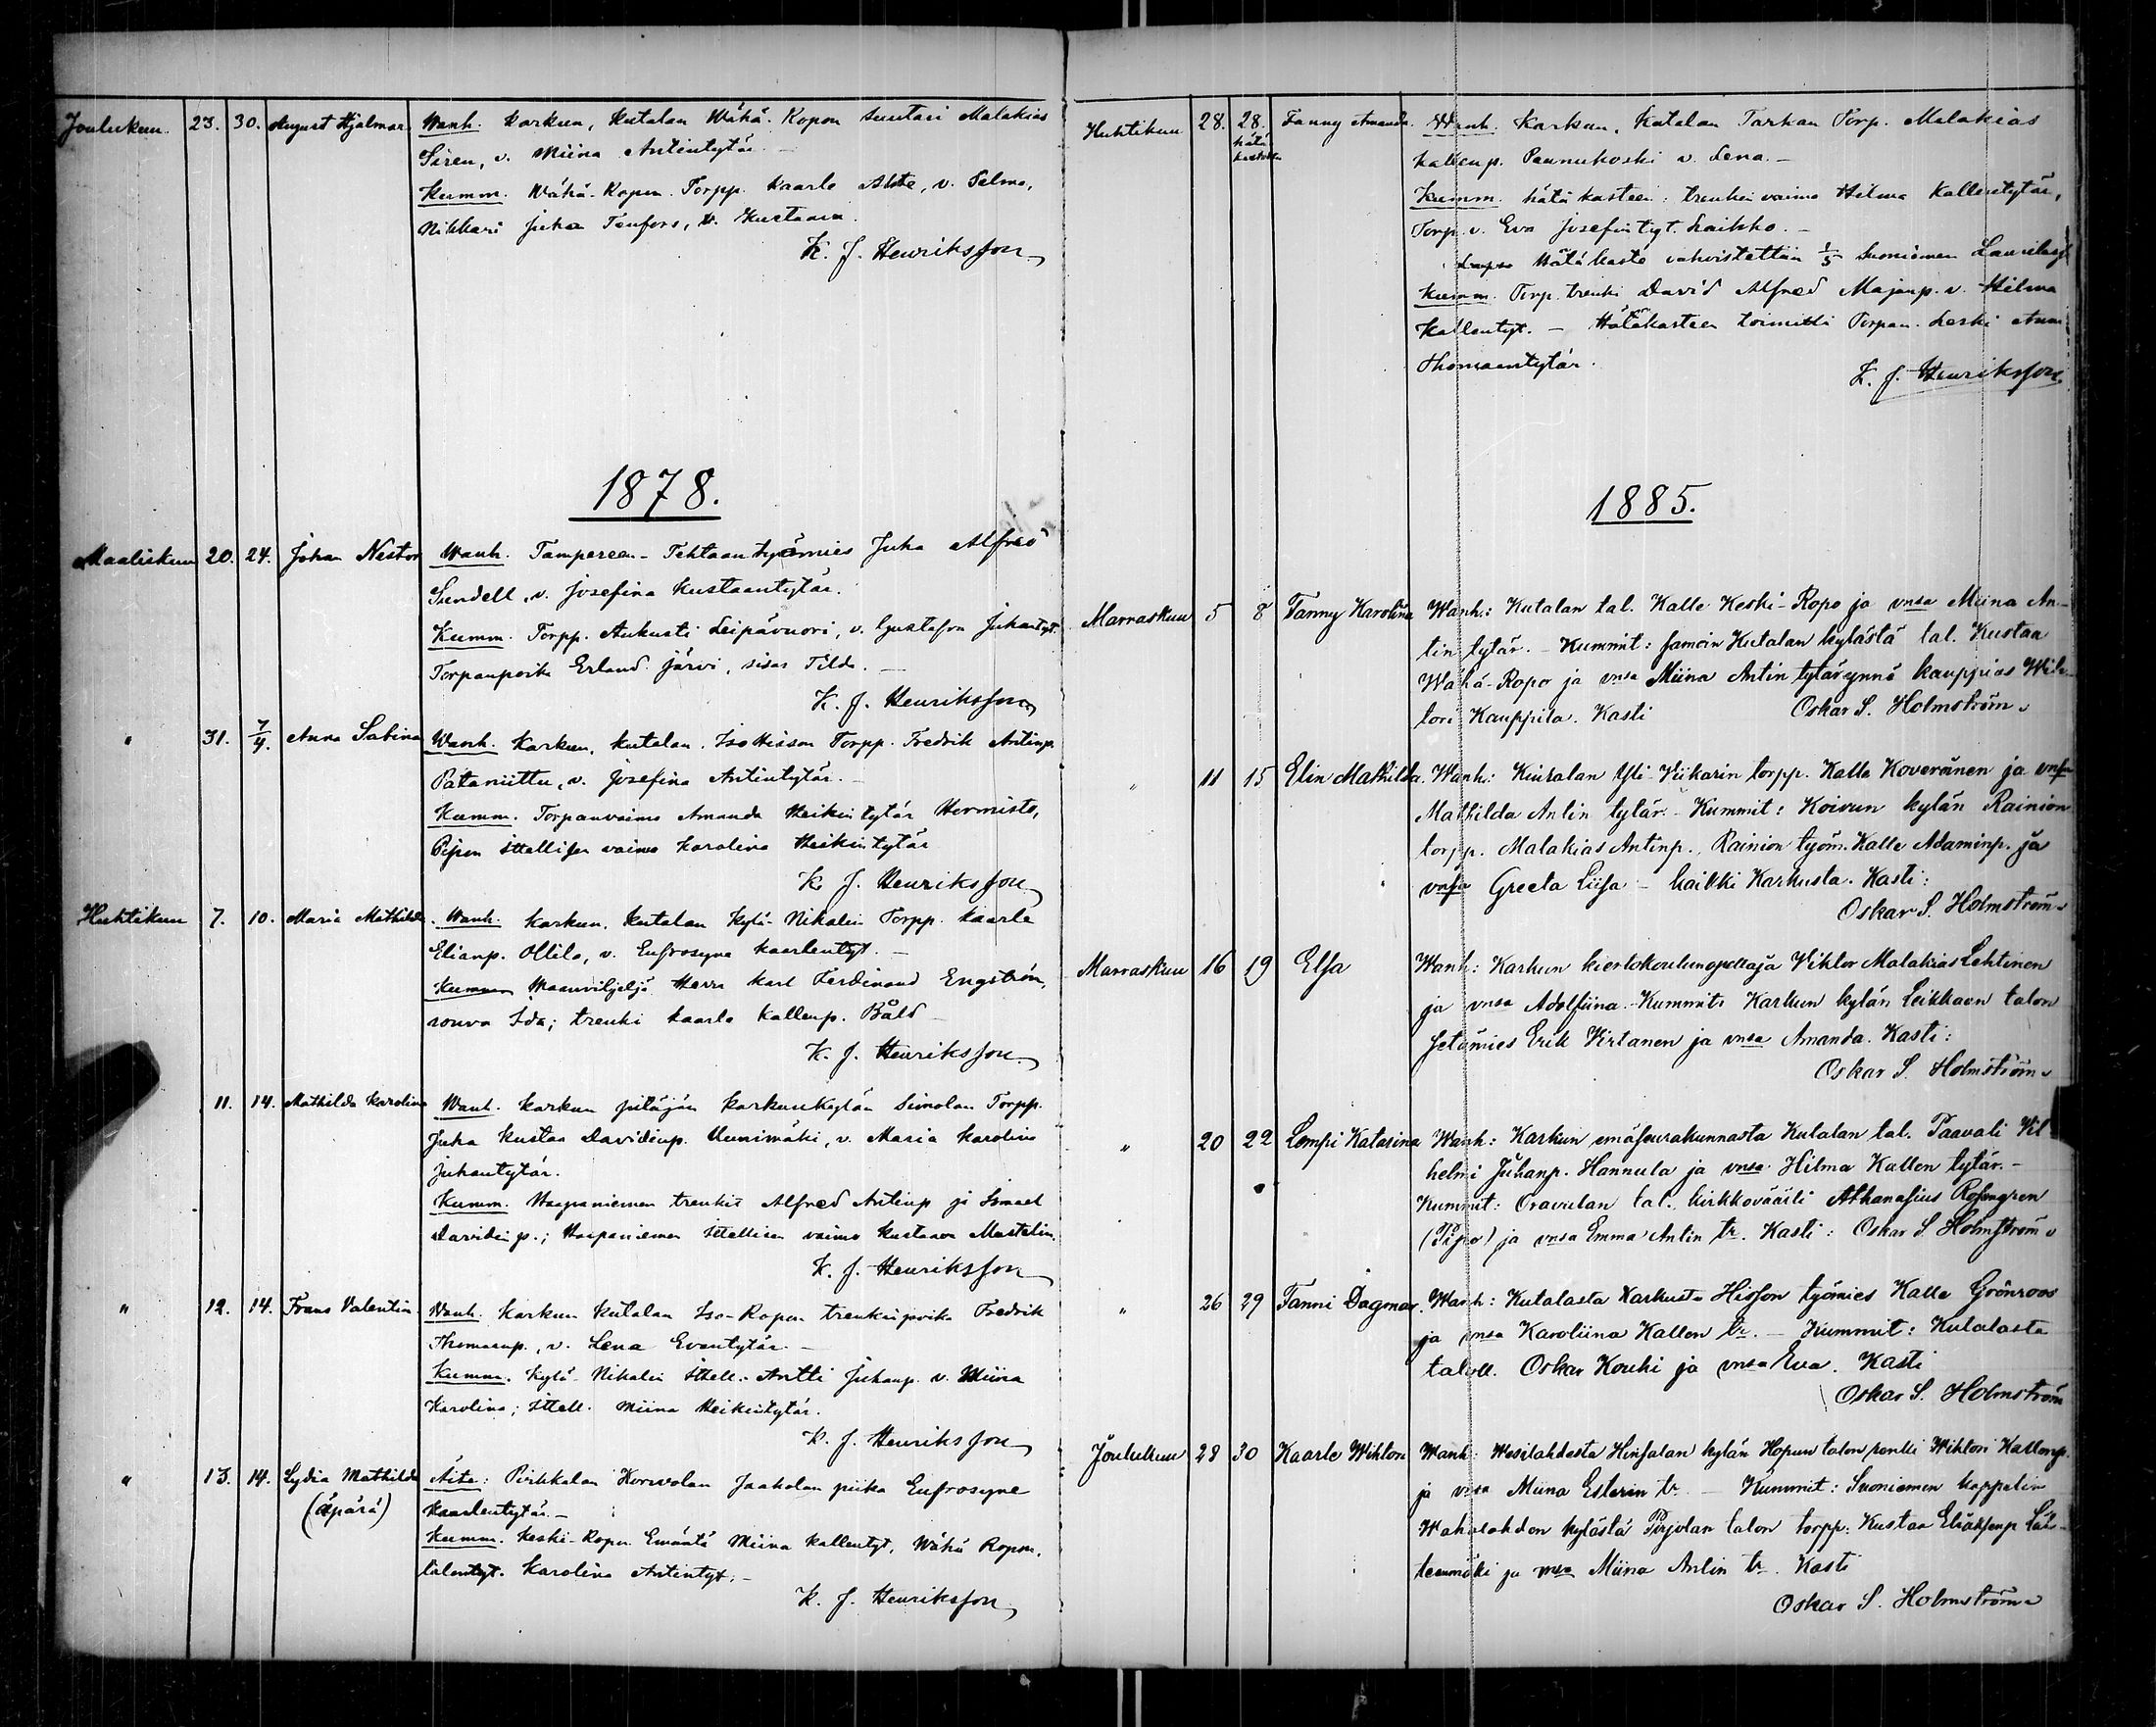 Joulukuu. 23. 30. August Hjalmar. Wanh. Karkun, Kutalan Wähä-Ropon suutari Malakias
Siren, v. Miina Antintytär. —
Kumm. Wähä-Ropon Torpp. Kaarle v. Selma,
Nikkari Juha Tenfors, v. Kustaava.
K. J. Henriksson
1878.
Maaliskuu 20. 24. Johan Nestor Wanh. Tampereen Tehtaan työmies Juha Alfred
Sundell, v. Josefina Kustaantytär.
Kumm. Torpp. Aukusti Leipävuori, v. Gustafva Juhantyt.
Torpanpoika Erland Järvi, sisar Tilda. —
K. J. Henriksson
" 31. 7/4. Anna Sabina Wanh. Karkun, Kutalan, Iso Hisson Torpp. Fredrik Antinp.
Pataniittu, v. Josefina Antintytär. —
Kumm. Torpanvaimo Amanda Heikintytär Hermisto,
Pijpon ittellisen vaimo Karolina Heikintytär
K. J. Henriksson
Huhtikuu 7. 10. Maria Mathilda. Wanh. Karkun, Kutalan Kylä-Nikalin Torpp. Kaarle
Elianp. Ollila, v. Eufrosyne Kaarlentyt. —
Kumm. Maanviljeljä Herra Karl Ferdinand Engström,
rouva Ida; trenki Kaarlo Kallenp. Båld —
K. J. Henriksson
11. 14. Mathilda Karolina Wanh. Karkun pitäjän Karkunkylän Simolan Torpp.
Juha Kustaa Davidinp. Uunimäki, v. Maria Karolina
Juhantytär.
Kumm. Haapaniemen trenkit Alfred Antinp ja Ismael
Davidinp.; Haapaniemen ittellisen vaimo Kustaava Mustelin.
K. J. Henriksson
" 12. 14. Frans Valentin. Wanh. Karkun Kutalan Iso-Ropon trenkinpoika Fredrik
Thomasnp., v. Lena Evantytär. —
Kumm. Kylä-Nikalin Ittell. Antti Juhanp. v. Miina
Karolina; ittell. Miina Heikintytär.
K. J. Henriksson
" 13. 14. Lydia Mathilda Äiti: Pirkkalan Korvolan Jaakolan piika Eufrosyne
(äpärä) Kaarlentytär. —
Kumm. Keski-Ropon Emäntä Miina Kallentyt, Wähä Ropon,
talontyt. Karolina Antintyt. —
K. J. Henriksson
Huhtikuu 28. 28. Fanny Amanda. Wanh. Karkun, Kutalan Tarkan Torp. Malakias
hätä Kallenp. Paunukoski v. Lena. —
Kumm. hätä kasteen: trenkin vaimo Hilma Kallentytär,
Torp. v. Eva Josefintyt. Laikko. —
Hätäkaste vahvistettiin 1/5 Suoniemen
Kumm. Torp. trenki David Alfred Majanp. v. Hilma
Kallentyt. — Hätäkasteen toimitti Torpan Leski Anna
Thomaantytär.
K. J. Henriksson.
1885.
Marraskuu 5 8 Fanny Karolina Wanh: Kutalan tal. Kalle Keski-Ropo ja vnsa Miina An-
tin tytär. — Kummit: samoin Kutalan kylästä tal. Kustaa
Wähä-Ropo ja vnsa Miina Antin tytär ynnä kauppias Wik-
tori Kauppila. Kasti Oskar S. Holmström
" 11 15 Elin Mathilda. Wanh: Kiuralan Yli-Viikarin torpp. Kalle Koveroinen ja vnsa
Mathilda Antin tytär. — Kummit: Koivun kylän Rainion
torpp. Malakias Antinp., Rainion työm. Kalle Adaminp. ja
vnsa Greeta Liisa — kaikki Karkusta. Kasti:
Oskar S. Holmström
Marraskuu 16 19 Elsa Wanh: Karkun kiertokoulunopettaja Viktor Malakias Lehtinen
ja vnsa Adolfiina. Kummit: Karkun kylän Leikkaan talon
setämies Erik Virtanen ja vnsa Amanda. Kasti:
Oskar S. Holmström
" 20 22 Lempi Katarina Wanh: Karkun emäseurakunnasta Kutalan tal. Paavali Vil
helmi Juhanp. Hannula ja vnsa Hilma Kallen tytär. —
Kummit: Oravulan tal. kirkkovääti Athanasius Rosengren
(Pijpo) ja vnsa Emma Antin tr. Kasti: Oskar S. Holmström
" 26 29 Fanni Dagmar. Wanh: Kutalasta Karkusta Hisson työmies Kalle Grönroos
ja vnsa Karoliina Kallen tr. — Kummit: Kutalasta
taloll. Oskar Kouhi ja vnsa Eva. Kasti
Oskar S. Holmström
Joulukuu 28 30 Kaarle Wihtori Wanh: Wesilahdesta Hinsalan kylän Hopun talon renki Wihtori Kallenp.
ja vnsa Miina Esterin tr. — Kummit: Suoniemen kappelin
Wahalahden kylästä Pirjolan talon torpp. Kustaa
ja vnsa Miina Antin tr. Kasti
Oskar S. Holmström